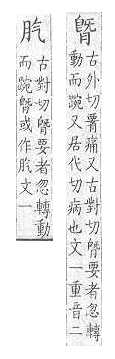 古外切痛又古對切要者忽轉
動而踠又居代切病也文一重音二
古對切要者忽轉動
而踠或作文一